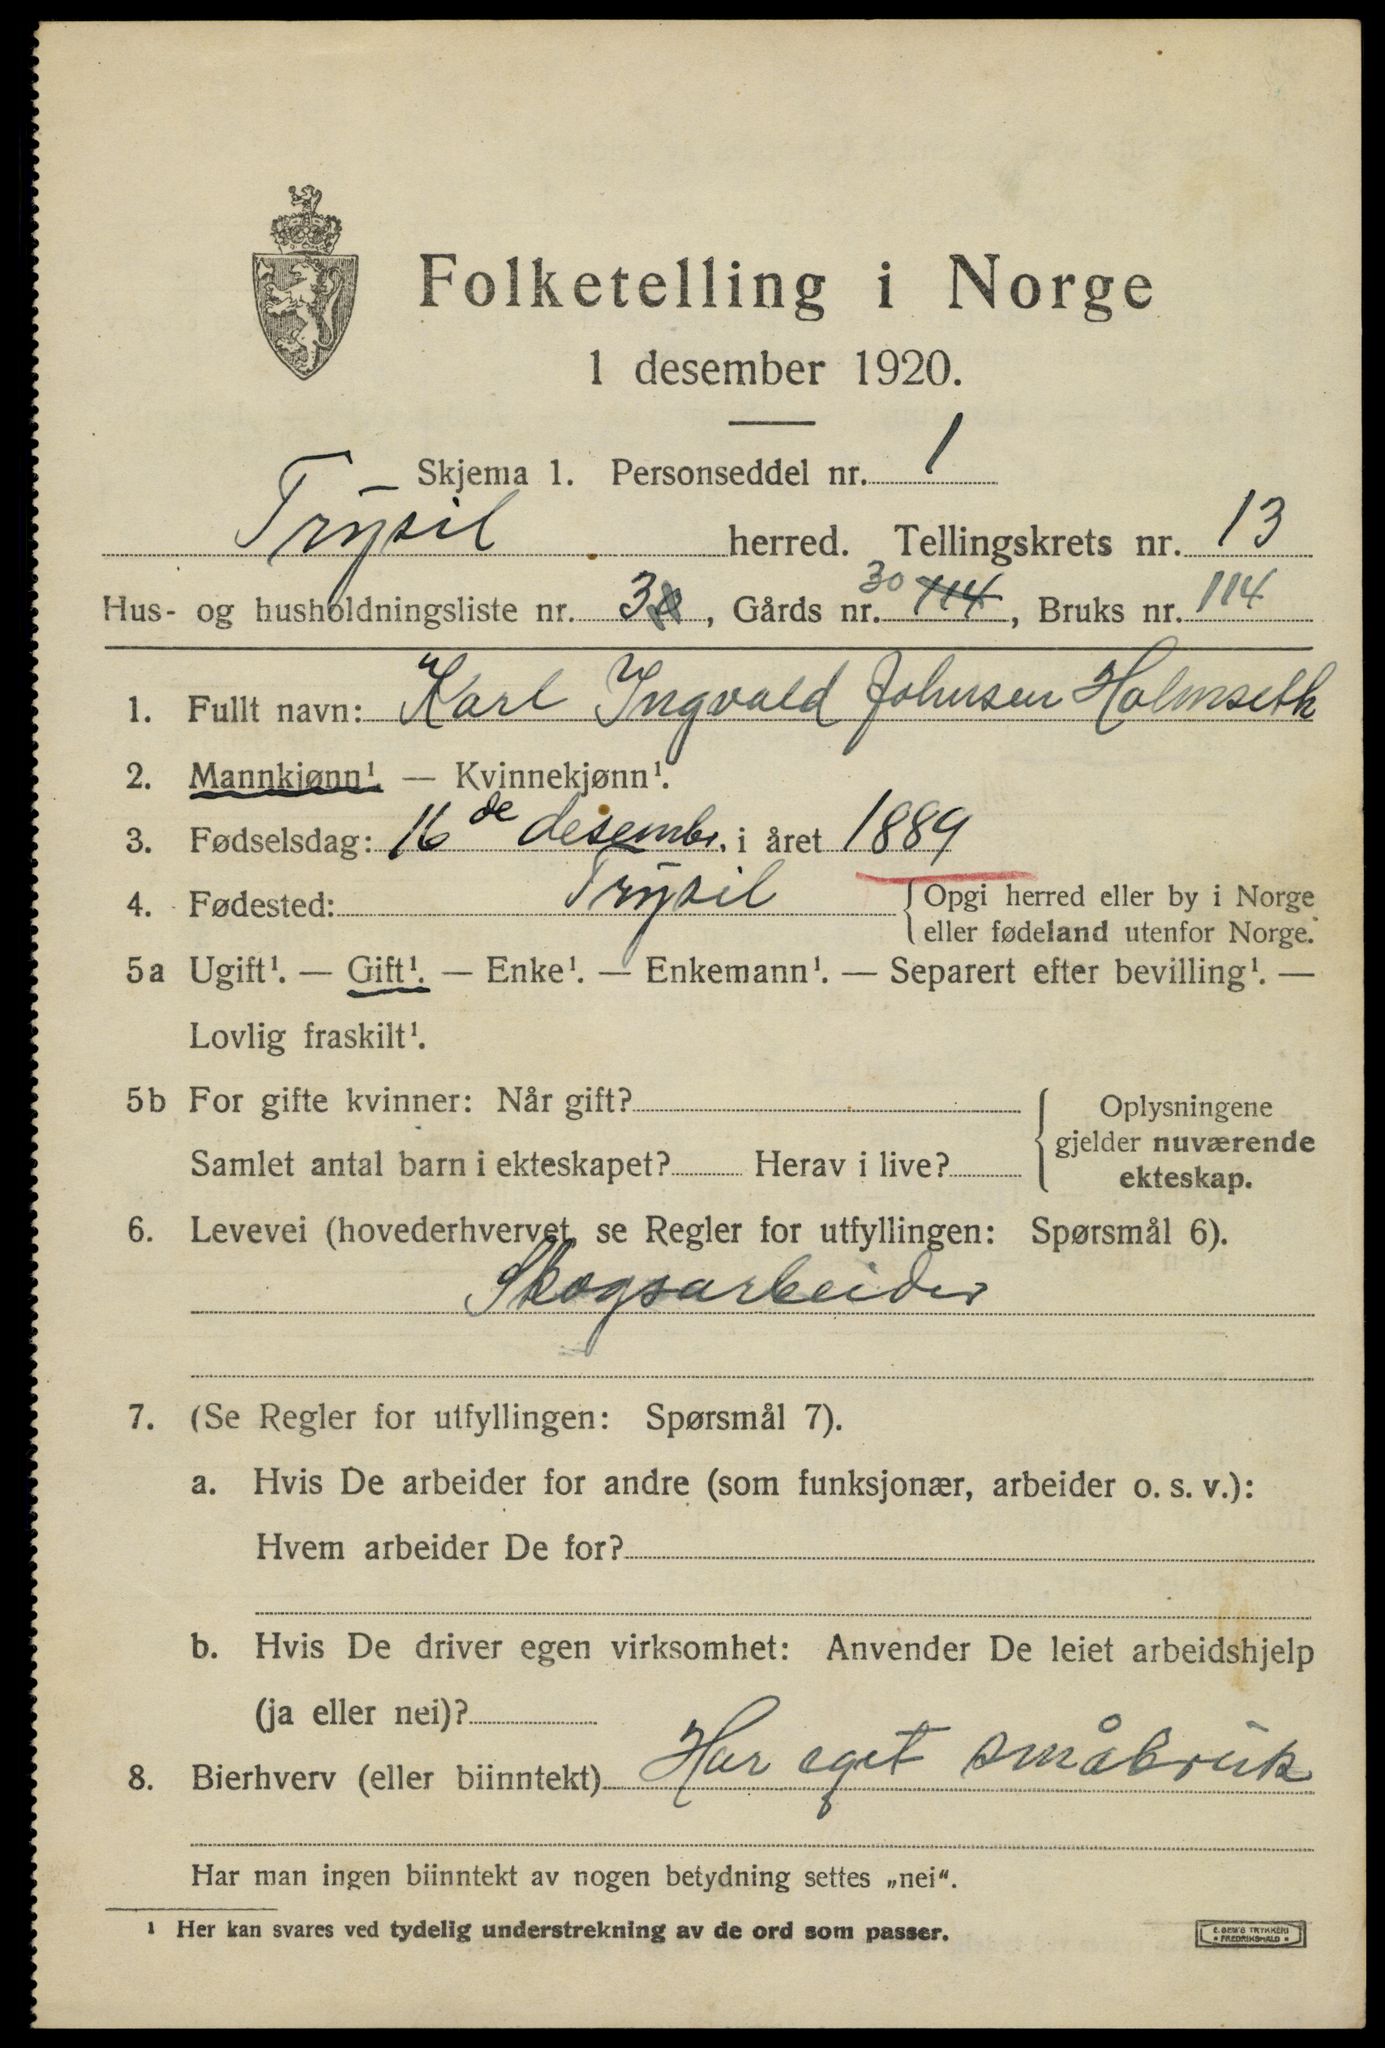 Folketelling i Norge
1 desember 1920.
Skjema 1. Personseddel nr. 1
Trysil herred. Tellingskrets nr. 13
Hus- og husholdningsliste nr. 3, Gårds nr. 30 114, Bruks nr. 114
1. Fullt navn: Karl Ingvald Johnsen Holmseth
2. Mannkjønn¹. — Kvinnekjønn¹.
3. Fødselsdag: 16de desembr. i året 1889
4. Fødested: Trysil {Opgi herred eller by i Norge
eller fødeland utenfor Norge.
5a Ugift¹. — Gift¹. — Enke¹. — Enkemann¹. — Separert efter bevilling¹. —
Lovlig fraskilt¹.
5b For gifte kvinner: Når gift?
Samlet antal barn i ekteskapet? Herav i live?
Oplysningene
gjelder nuværende
ekteskap.
6. Levevei (hovederhvervet, se Regler for utfyllingen: Spørsmål 6).
Skogsarbeider
7. (Se Regler for utfyllingen: Spørsmål 7).
a. Hvis De arbeider for andre (som funksjonær, arbeider o. s. v.):
Hvem arbeider De for?
b. Hvis De driver egen virksomhet: Anvender De leiet arbeidshjelp
(ja eller nei)?
8. Bierhverv (eller biinntekt) Har eget småbruk
Har man ingen biinntekt av nogen betydning settes „nei“.
¹ Her kan svares ved tydelig understrekning av de ord som passer.
TRYKKERI
FREDRIKSHALD